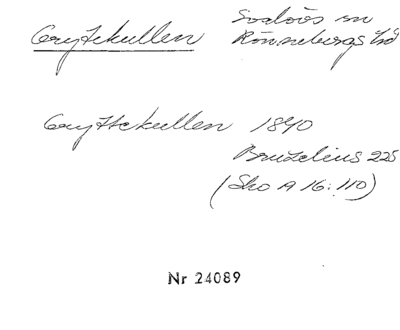 Grytekullen Svalövs sn
Rönnebergs hd
Gryttekullen 1840
Bruzelius 225
(Sko A 16:110)
Nr 24089